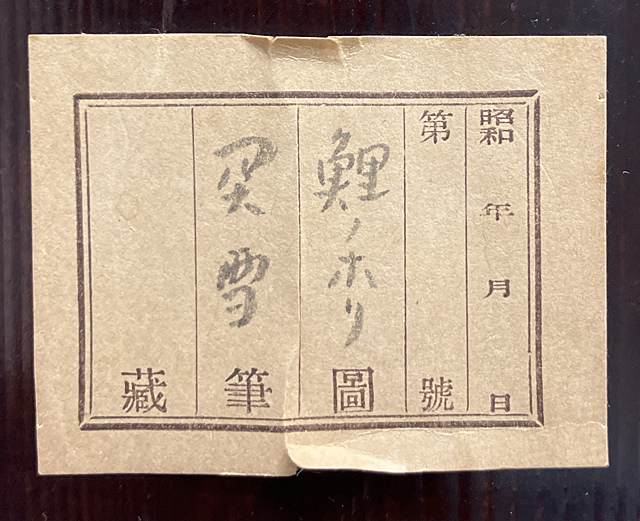 昭和 年 月 日
第 號
鯉ノホリ 圖
関雪 筆
藏